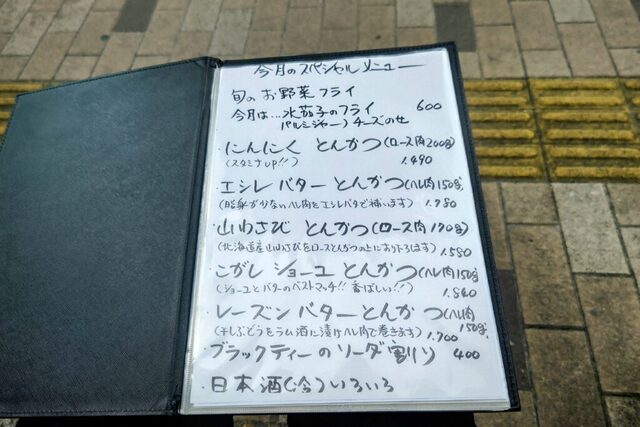 今月のスペシャルメニュー
旬のお野菜フライ
今月は…水茄子のフライ 600
パルミジャーノチーズのせ
・にんにく とんかつ(ロース肉200g)
(スタミナUP!!) 1.490
・エシレバターとんかつ(ヒレ肉150g)
(脂身が少ないヒレ肉をエシレバタで補います) 1.780
・山わさび とんかつ(ロース肉170g)
(北海道産山わさびをロースとんかつの上におり下ろします) 1.580
・こがしショーユとんかつ(ヒレ肉150g)
(ショーユとバターのベストマッチ!! 香ばしい!!) 1.840
・レーズンバターとんかつ(ヒレ肉150g)
(干しぶどうをラム酒に漬けヒレ肉で巻きます) 1.700
・ブラックティーのソーダ割り 400
・日本酒(冷)いろいろ